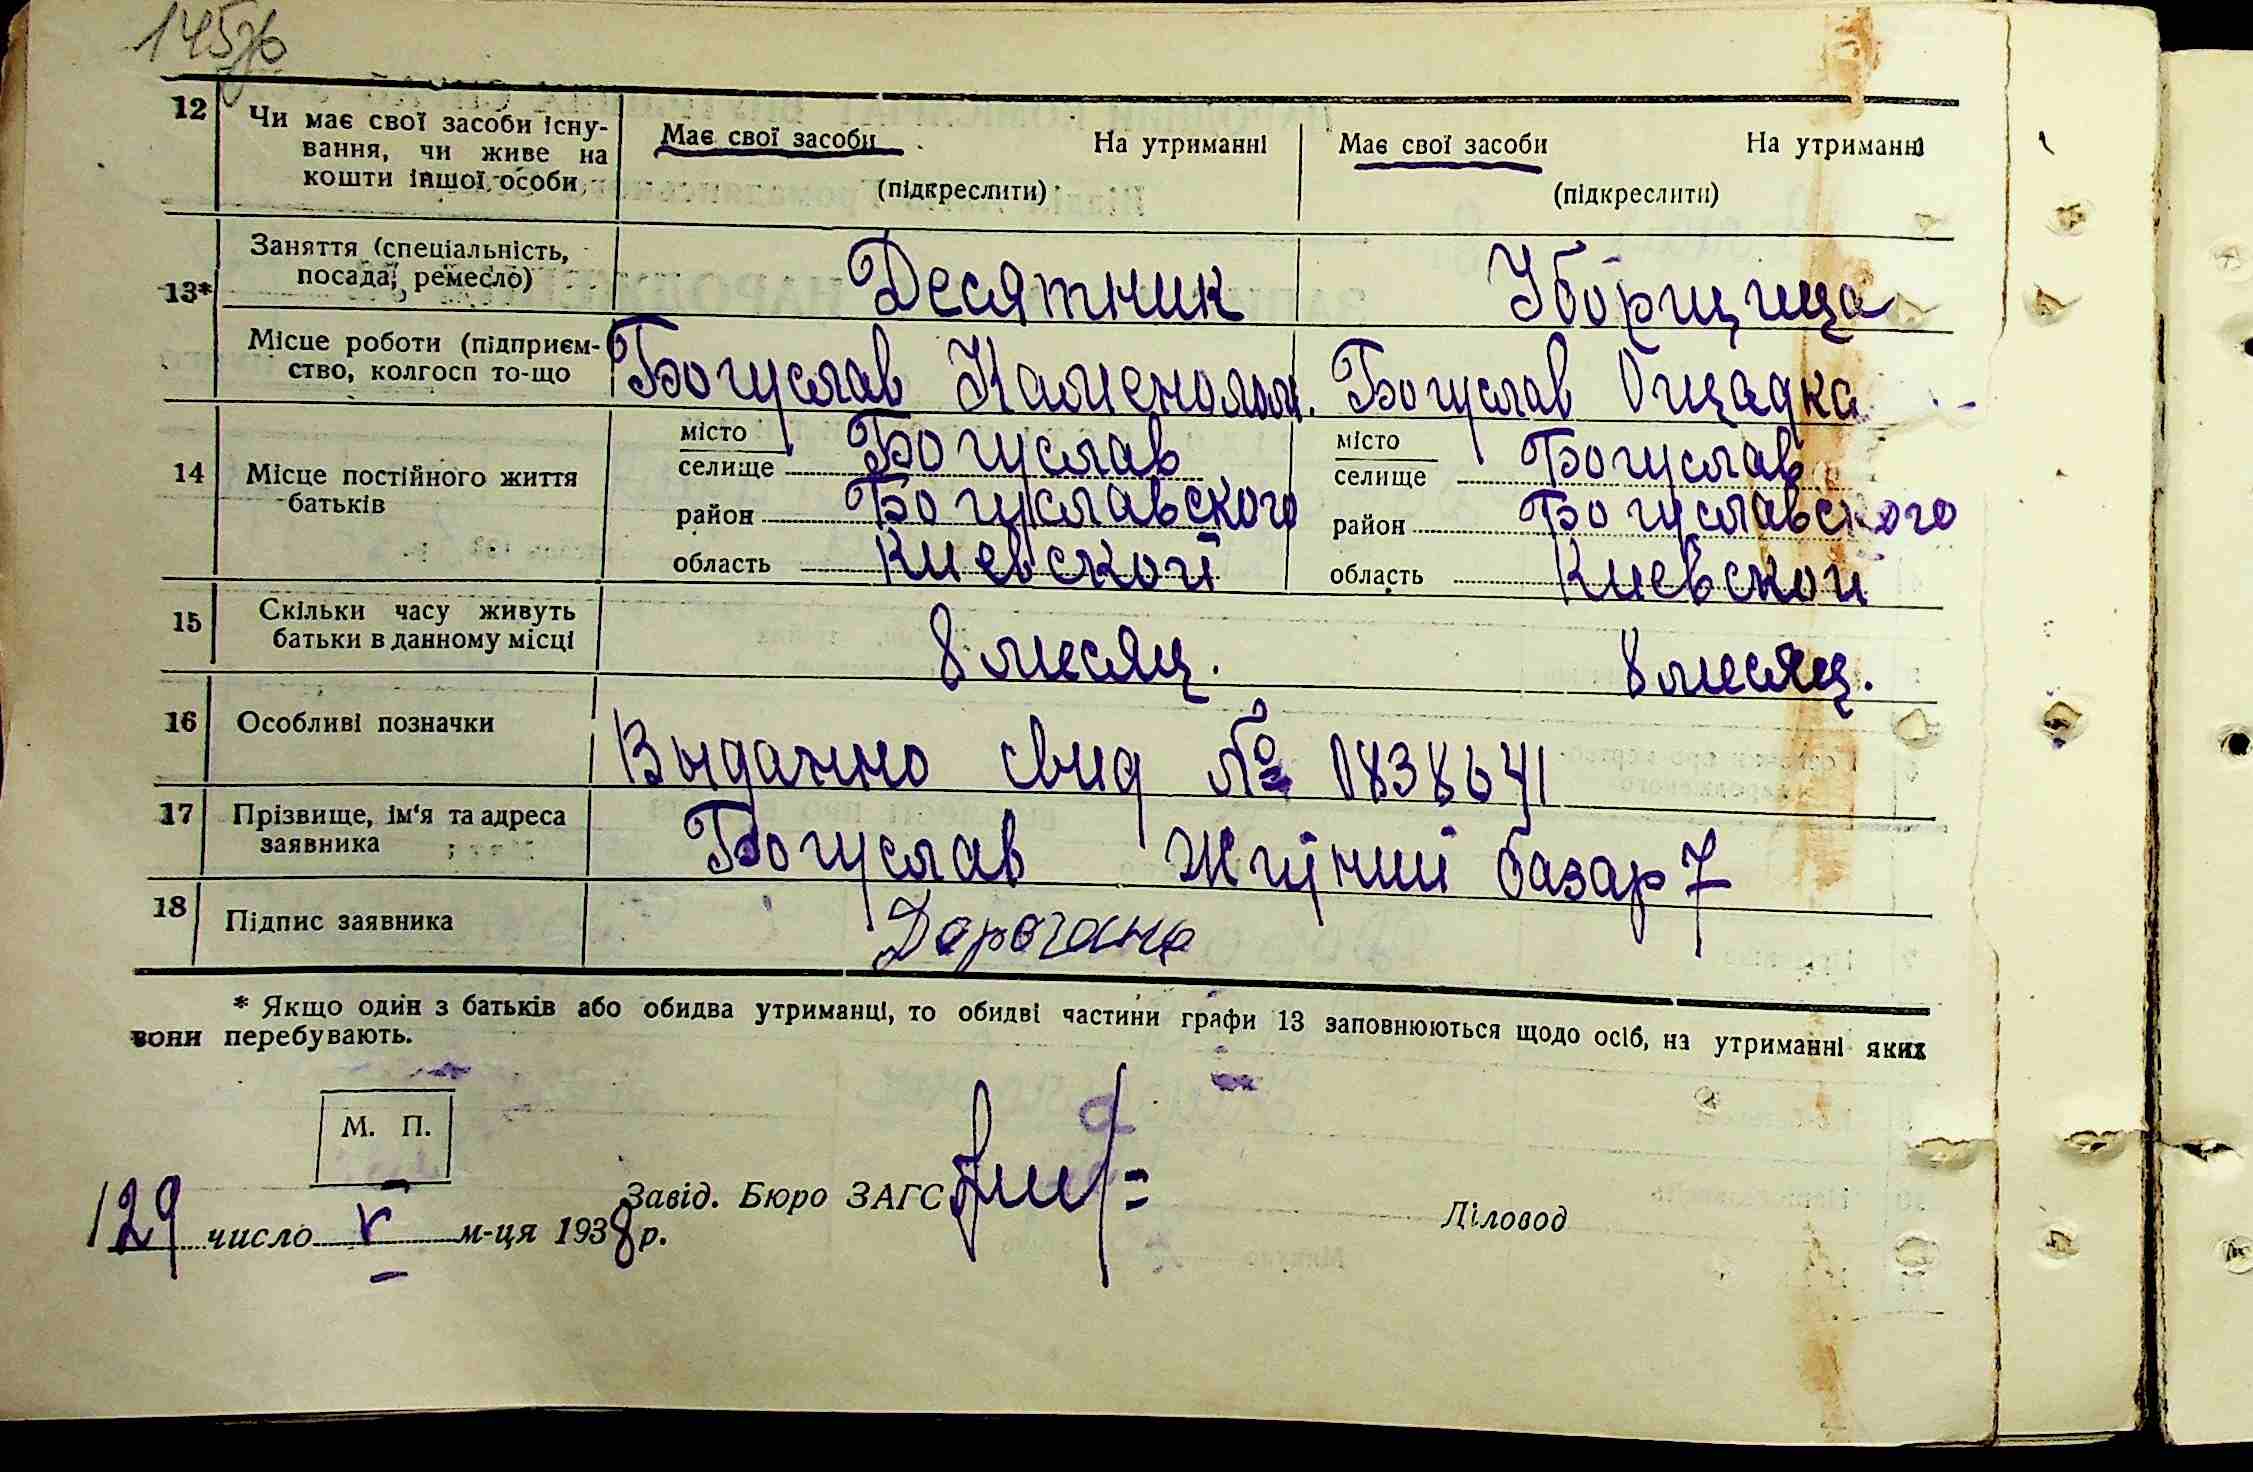 145зв
12 Чи має свої засоби існу-
вання, чи живе на
кошти іншої особи
Має свої засоби На утриманні
(підкреслити)
Має свої засоби На утриманні
(підкреслити)
13* Заняття (спеціальність,
посада, ремесло)
Десятник
Уборщица
Місце роботи (підприєм-
ство, колгосп то-що
Богуслав Каменолом.
Богуслав Ощадкa
14 Місце постійного життя
батьків
місто
селище Богуслав
район Богуславского
область Киевской
місто
селище Богуслав
район Богуславского
область Киевской
15 Скільки часу живуть
батьки в данному місці
8 месяц.
8 месяц.
16 Особливі позначки
Выданно свид № 0838641
17 Прізвище, ім'я та адреса
заявника
Богуслав базар 7
18 Підпис заявника
* Якщо один з батьків або обидва утриманці, то обидві частини графи 13 заповнюються щодо осіб, на утриманні яких
вони перебувають.
М. П.
Завід. Бюро ЗАГС
Діловод
29 число V м-ця 1938 р.